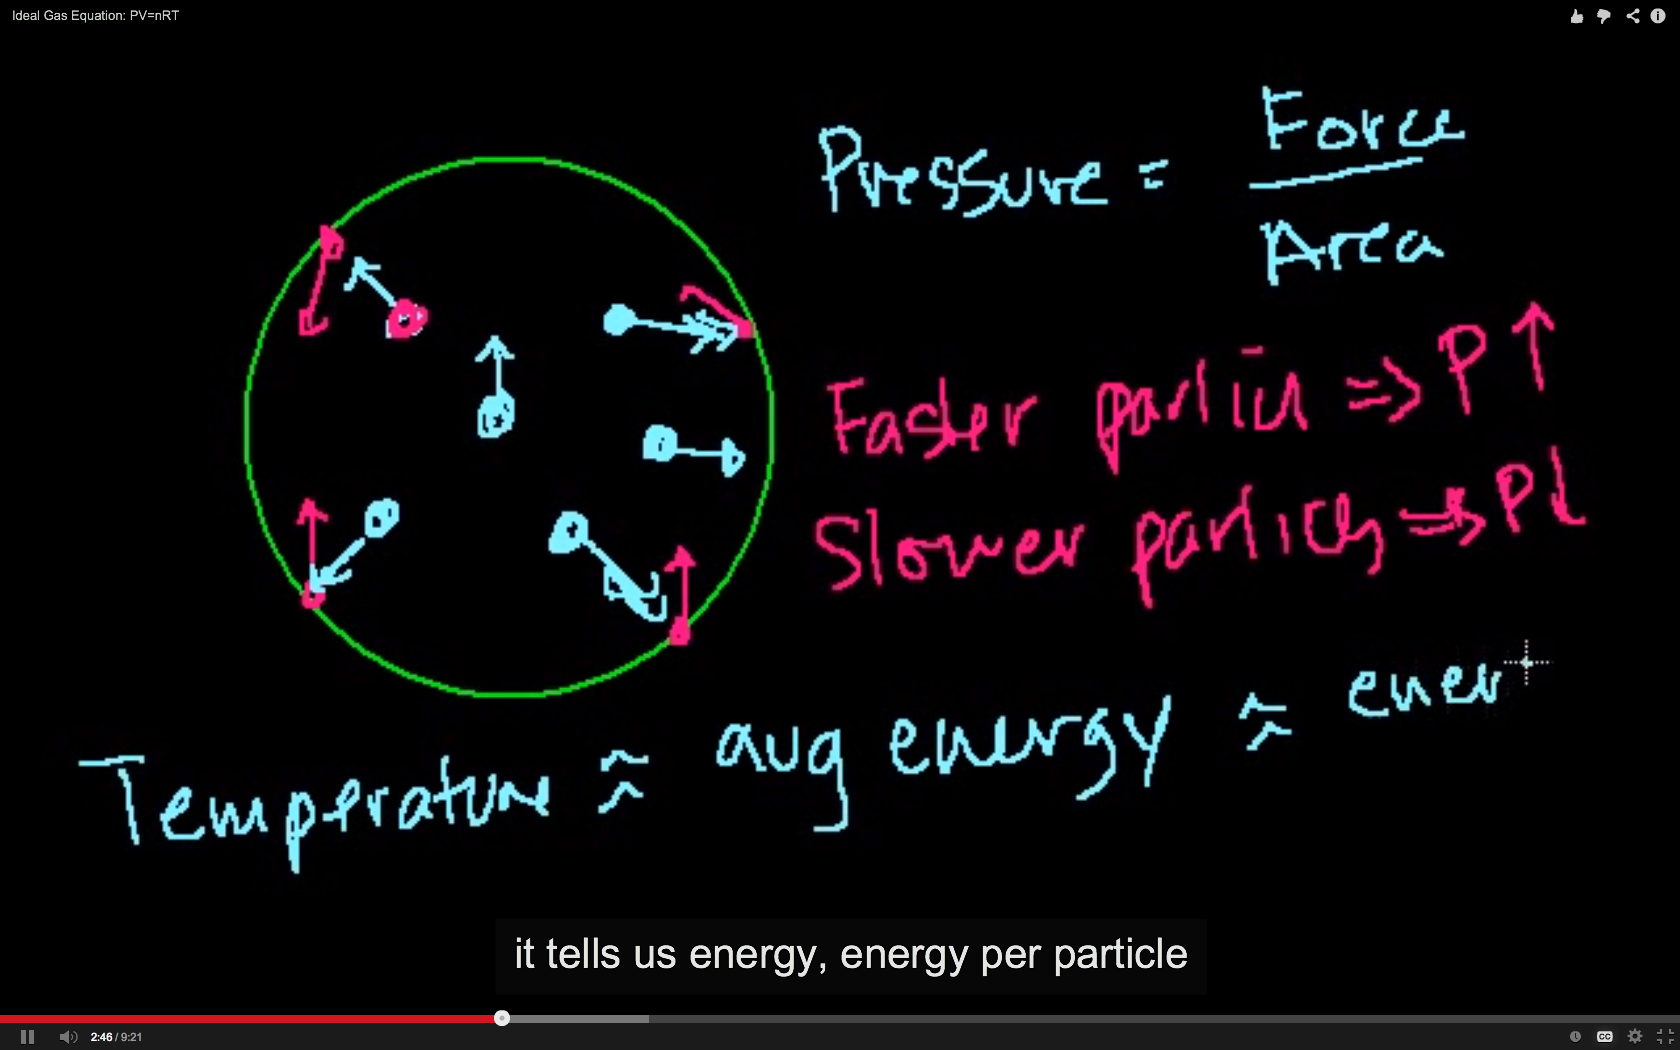 Ideal Gas Equation: PV=nRT
Pressure = Force
Area
Faster particl ⇒ P ↑
Slower particles ⇒ P ↓
Temperature ≈ avg energy ≈ ener
it tells us energy, energy per particle
2:46 / 9:21
CC